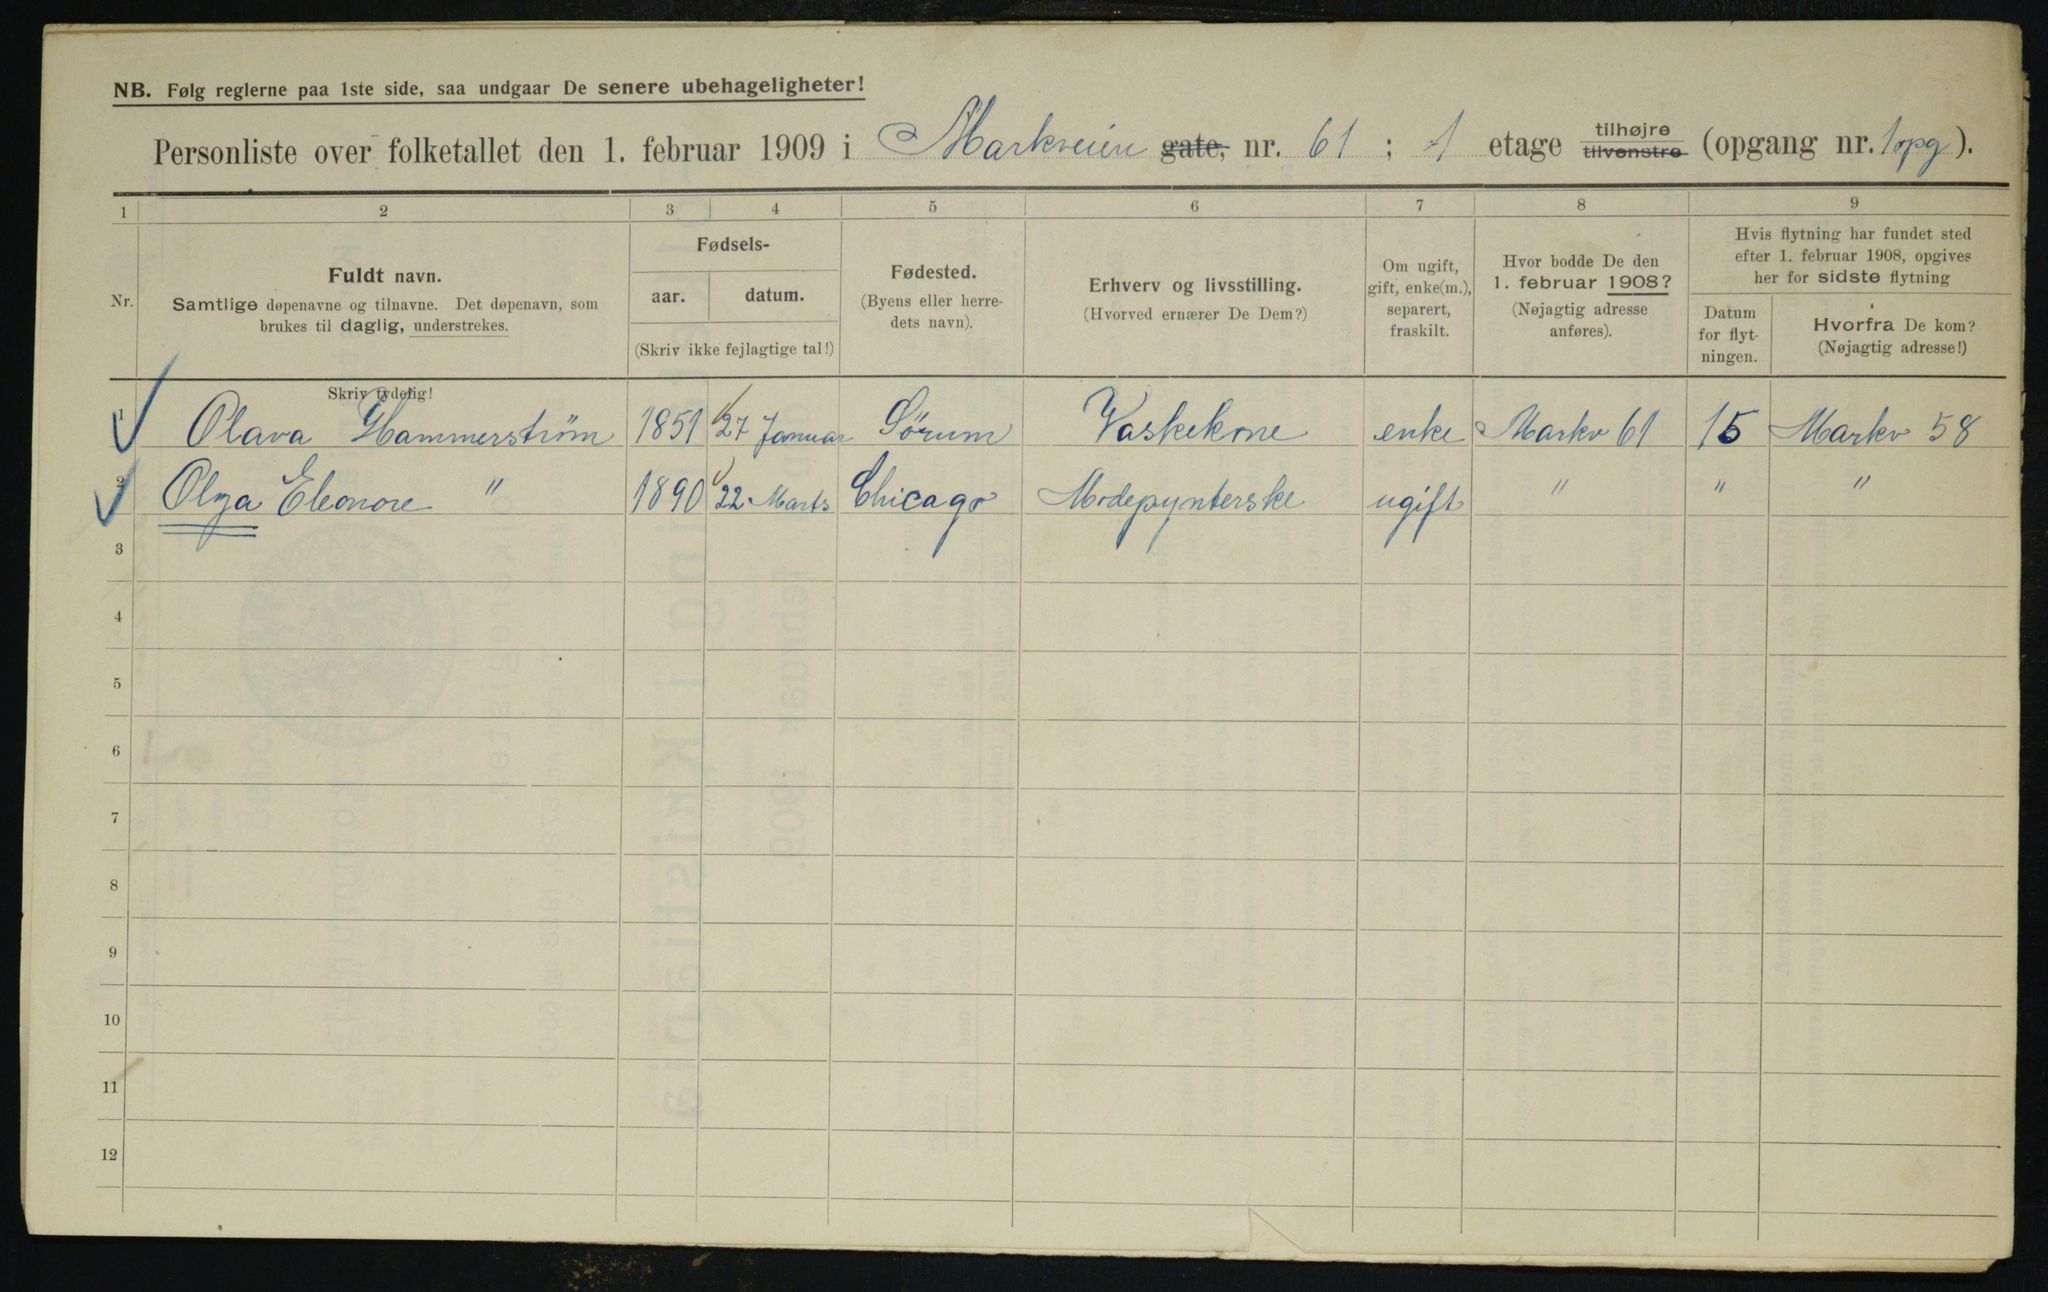 NB. Følg reglerne paa 1ste side, saa undgaar De senere ubehageligheter!
Personliste over folketallet den 1. februar 1909 i Markveien gate, nr. 61 ; 1 etage tilhøjre tilvenstre (opgang nr. 1 opg).
1 2 3 4 5 6 7 8 9
Nr.
Fuldt navn.
Samtlige døpenavne og tilnavne. Det døpenavn, som
brukes til daglig, understrekes.
Skriv tydelig!
Fødsels-
aar. datum.
(Skriv ikke fejlagtige tal!)
Fødested.
(Byens eller herre-
dets navn).
Erhverv og livsstilling.
(Hvorved ernærer De Dem?)
Om ugift,
gift, enke(m.),
separert,
fraskilt.
Hvor bodde De den
1. februar 1908?
(Nøjagtig adresse
anføres).
Hvis flytning har fundet sted
efter 1. februar 1908, opgives
her for sidste flytning
Datum
for flyt-
ningen.
Hvorfra De kom?
(Nøjagtig adresse!)
1 Olava Hammerström 1851 27 Januar Sörum Vaskekone enke Markv 61 15 Markv 58
2 Olga Eleonore " 1890 22 Marts Chicago Modepynterske ugift " " "
3
4
5
6
7
8
9
10
11
12